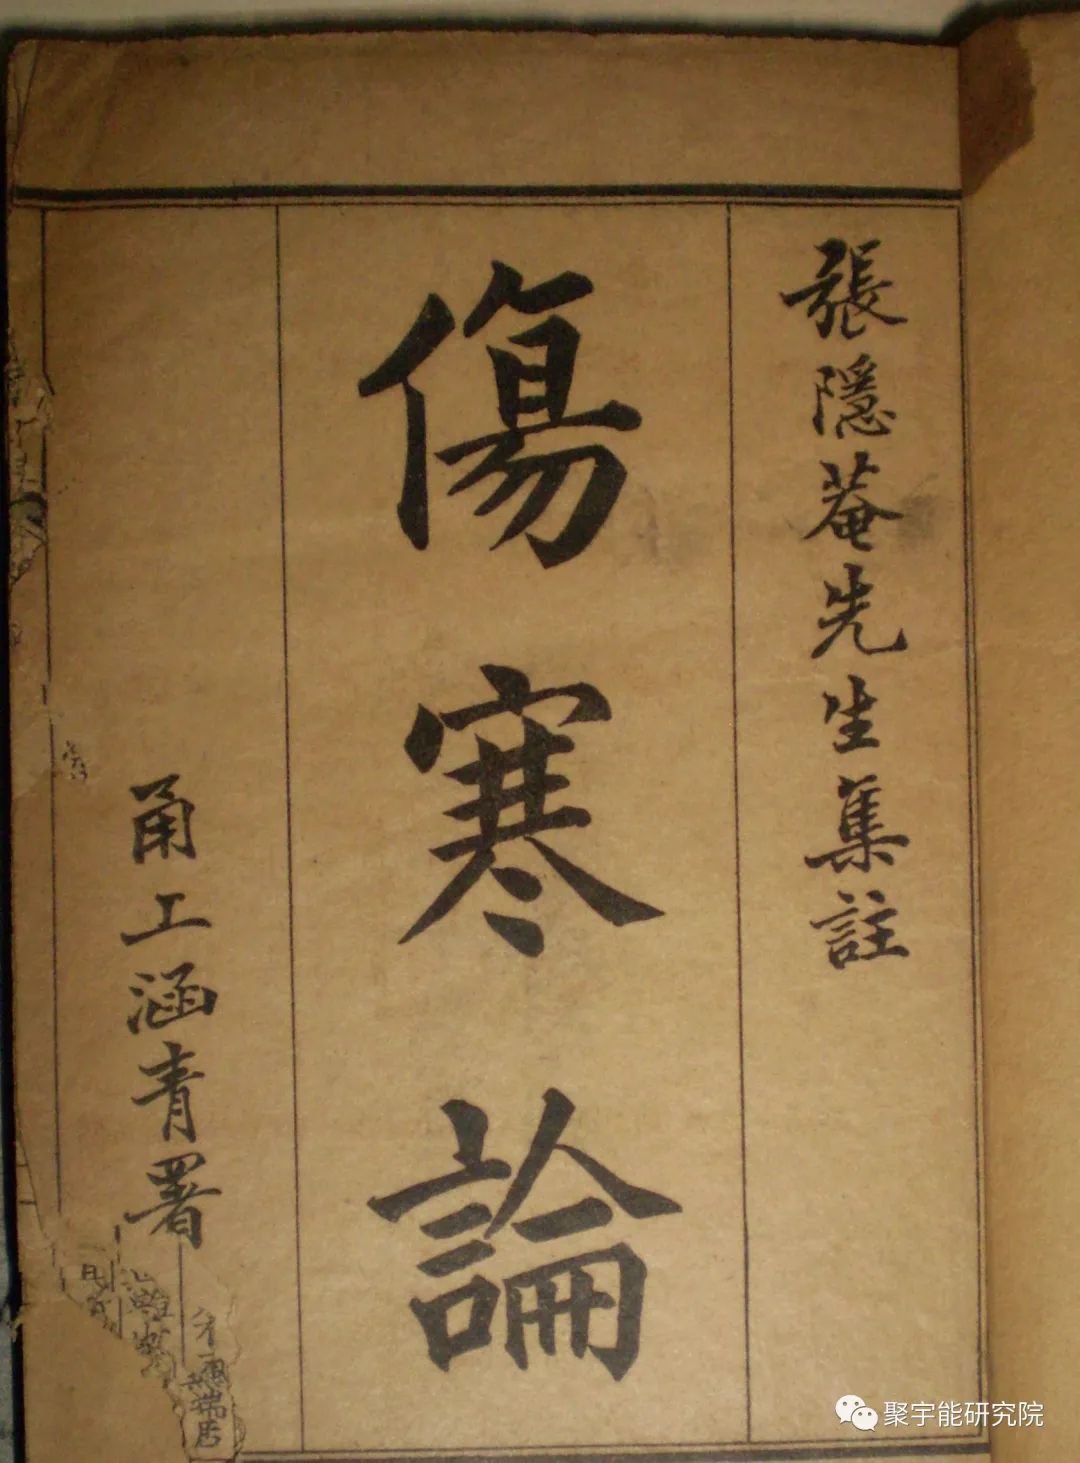 張隱菴先生集註
傷寒論
甬上涵青署
聚宇能研究院